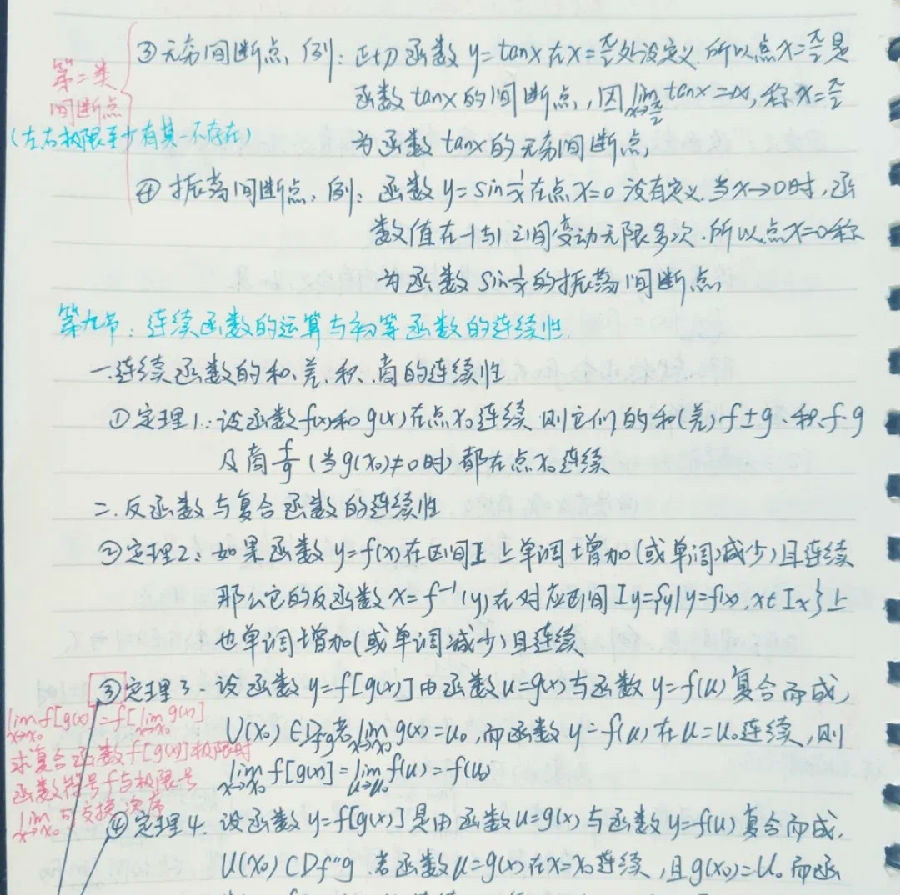 ③无穷间断点,例:正切函数y=tanx在x=π/2处没定义.所以点x=π/2是
函数tanx的间断点,因lim x→π/2 tanx=∞,称x=π/2
为函数tanx的无穷间断点,
第二类
间断点
(左右极限至少有其一不存在)
④振荡间断点,例:函数y=sin1/x在点x=0没有定义.当x→0时,函
数值在-1与1之间变动无限多次.所以点x=0称
为函数sin1/x的振荡间断点,
第九节:连续函数的运算与初等函数的连续性.
一.连续函数的和、差、积、商的连续性
①定理1:设函数f(x)和g(x)在点x₀连续 则它们的和(差)f±g、积f·g
及商f/g(当g(x₀)≠0时)都在点x₀连续
二.反函数与复合函数的连续性
②定理2:如果函数y=f(x)在区间I上单调增加(或单调减少)且连续
那么它的反函数x=f⁻¹(y)在对应区间Iy={y|y=f(x),x∈Ix}上
也单调增加(或单调减少)且连续
③定理3.设函数y=f[g(x)]由函数u=g(x)与函数y=f(u)复合而成,
U(x₀)∈Df·g若lim x→x₀ g(x)=u₀,而函数y=f(u)在u=u₀连续,则
lim x→x₀ f[g(x)]=lim u→u₀ f(u)=f(u₀)
lim x→x₀ f[g(x)]=f[lim x→x₀ g(x)]
求复合函数f[g(x)]极限时
函数符号f与极限号
lim x→x₀ 可交换次序
④定理4.设函数y=f[g(x)]是由函数u=g(x)与函数y=f(u)复合而成,
U(x₀)⊂Df·g.若函数u=g(x)在x=x₀连续,且g(x₀)=u₀.而函